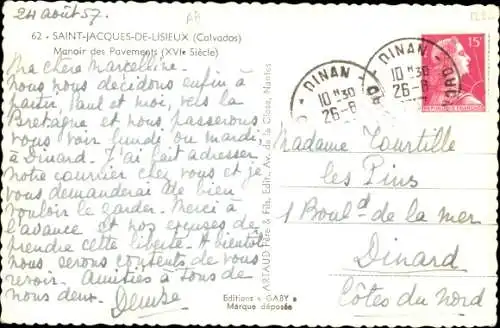 24 août 57.
62 - SAINT-JACQUES-DE-LISIEUX (Calvados)
Manoir des Pavements (XVIe Siècle)
Ma chère Marcelline.
Nous nous décidons enfin à
partir, Paul et moi, vers la
Bretagne et nous passerons
vous voir lundi ou mardi
à Dinard. J'ai fait adresser
notre courrier chez vous et je
vous demanderai de bien
vouloir le garder. Merci à
l'avance et nos excuses de
prendre cette liberté. A bientôt
nous serons contents de vous
revoir. Amitiés à tous de
nous deux. Denise
ARTAUD Père & Fils, Edit., Av. de la Close, Nantes
Editions "GABY"
Marque déposée
DINAN
10 H 30
26-8
DINAN
10 H 30
26-8
15F
REPUBLIQUE FRANÇAISE
Madame Tourtille
les Pins
1 Boul.d de la mer
Dinard
Côtes du Nord